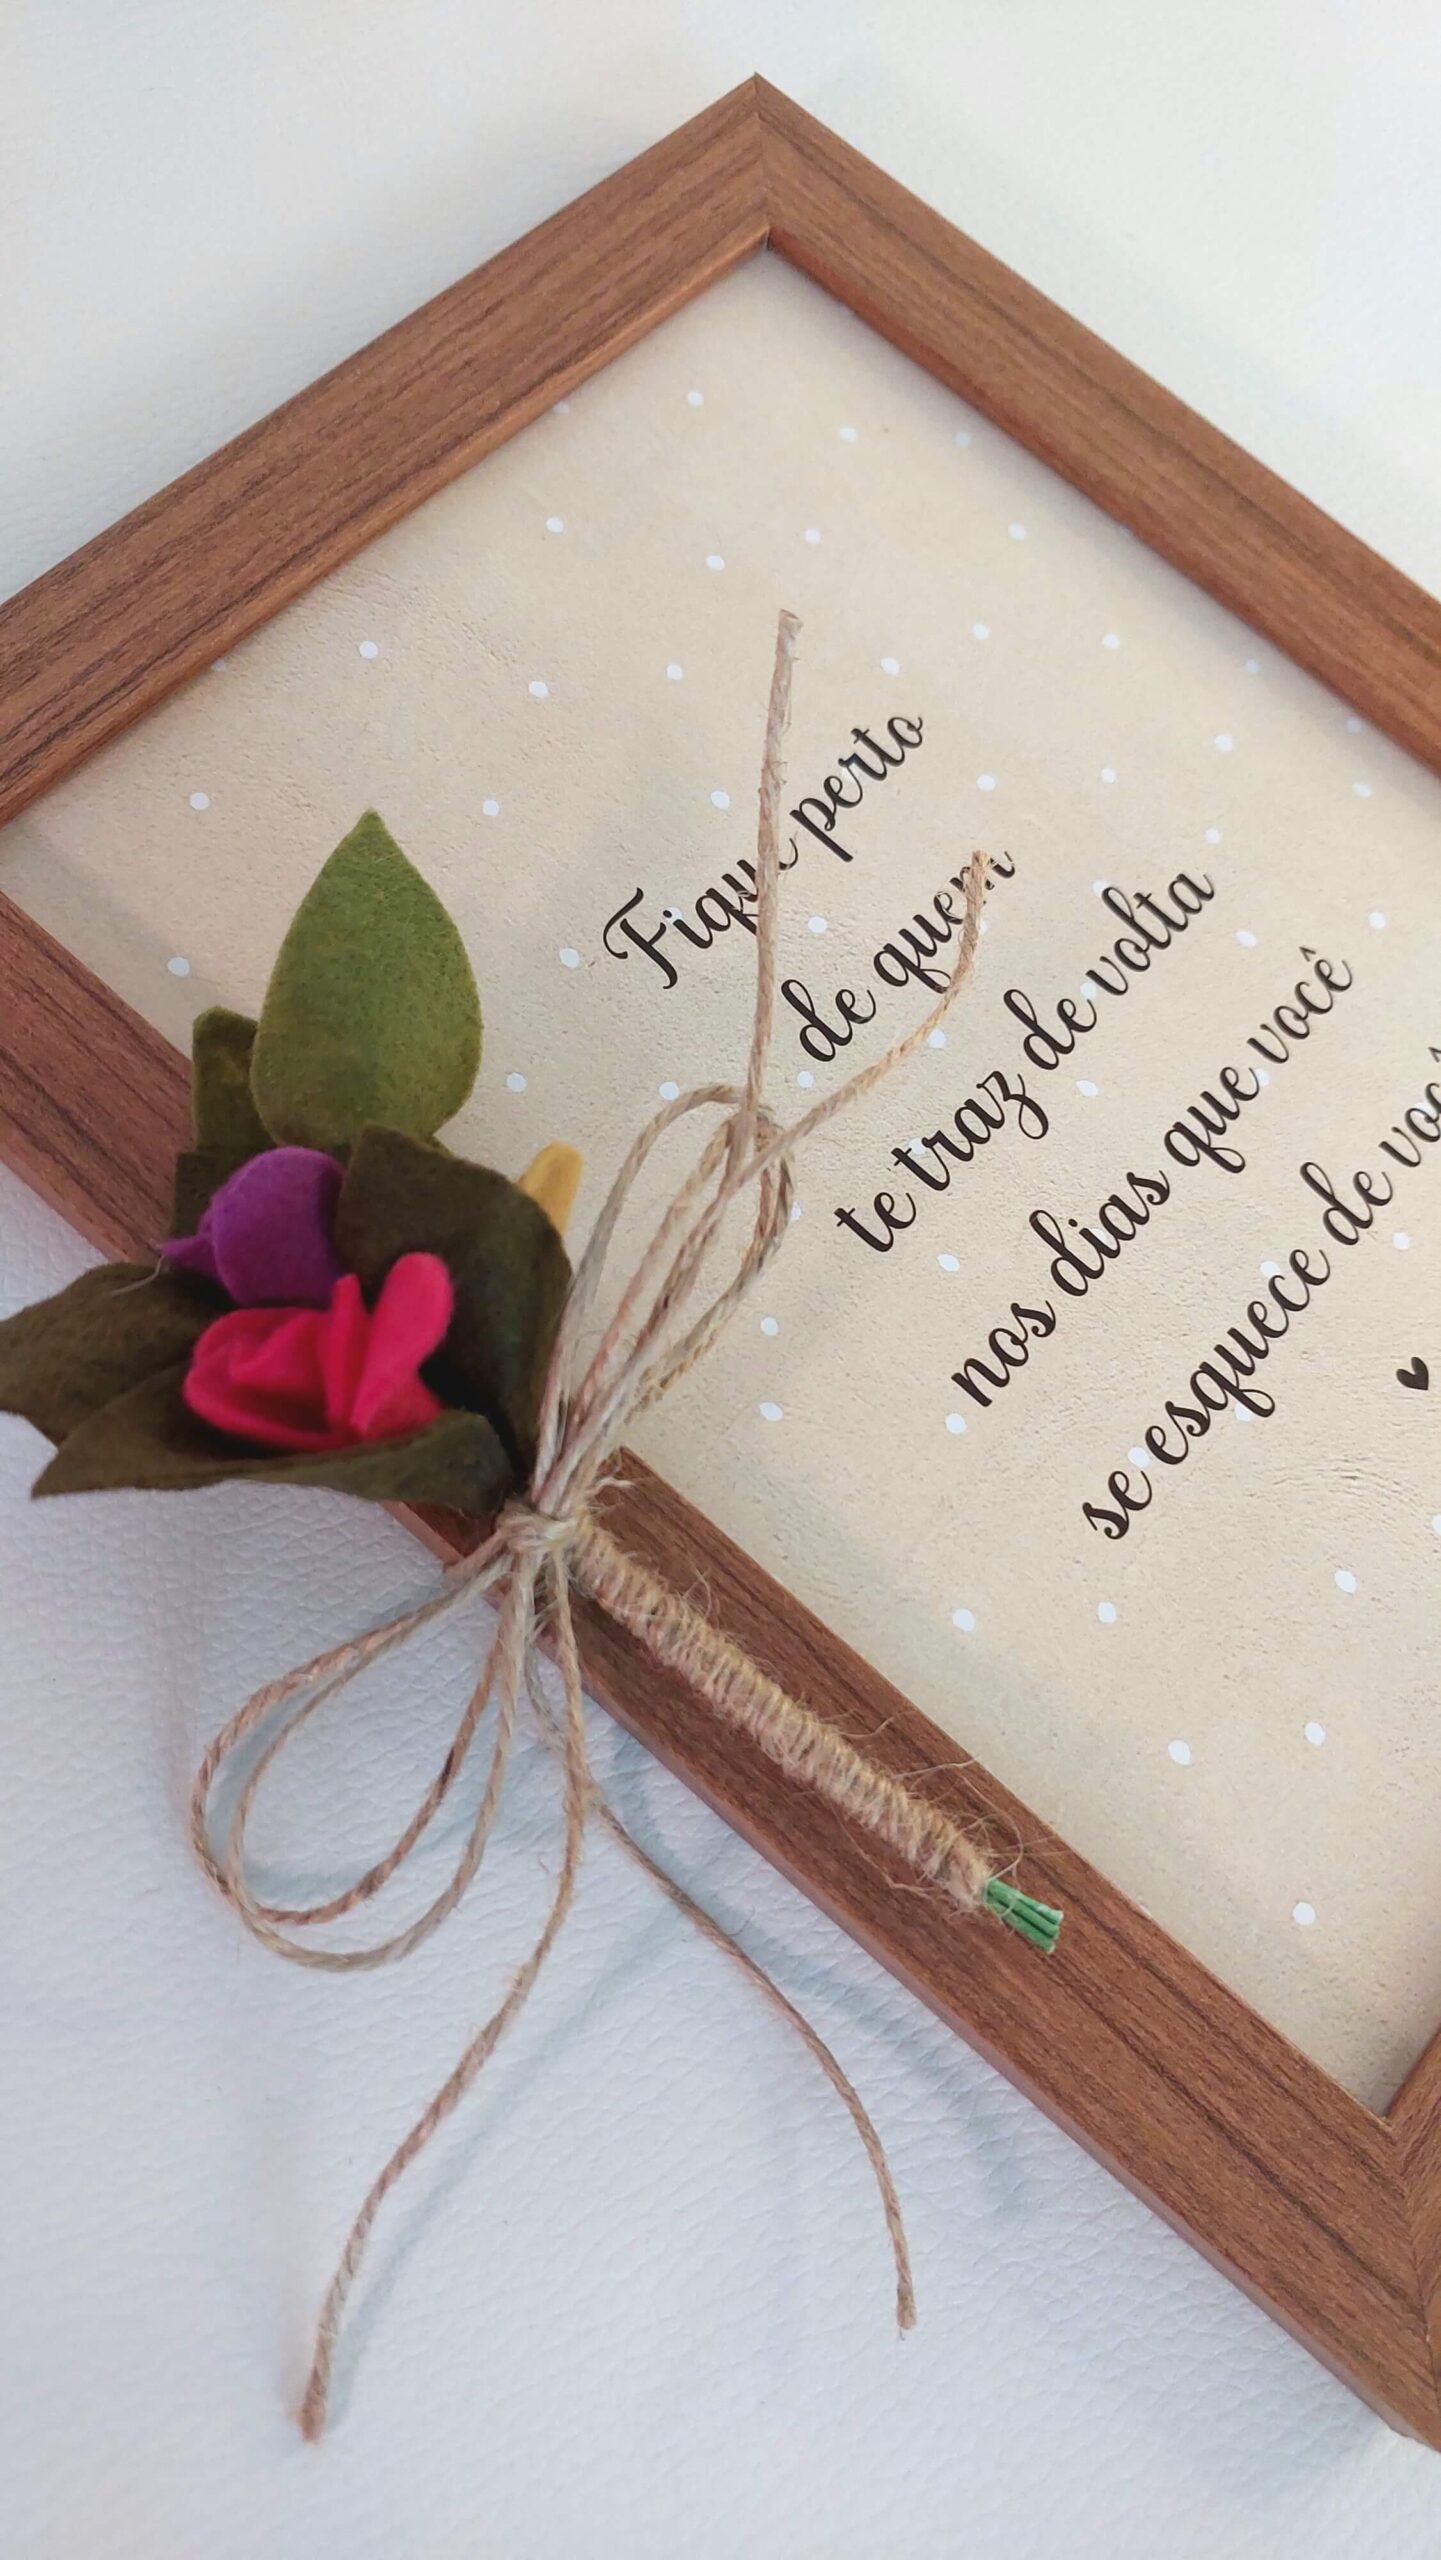 Fique perto
de quem
te traz de volta
nos dias que você
se esquece de você